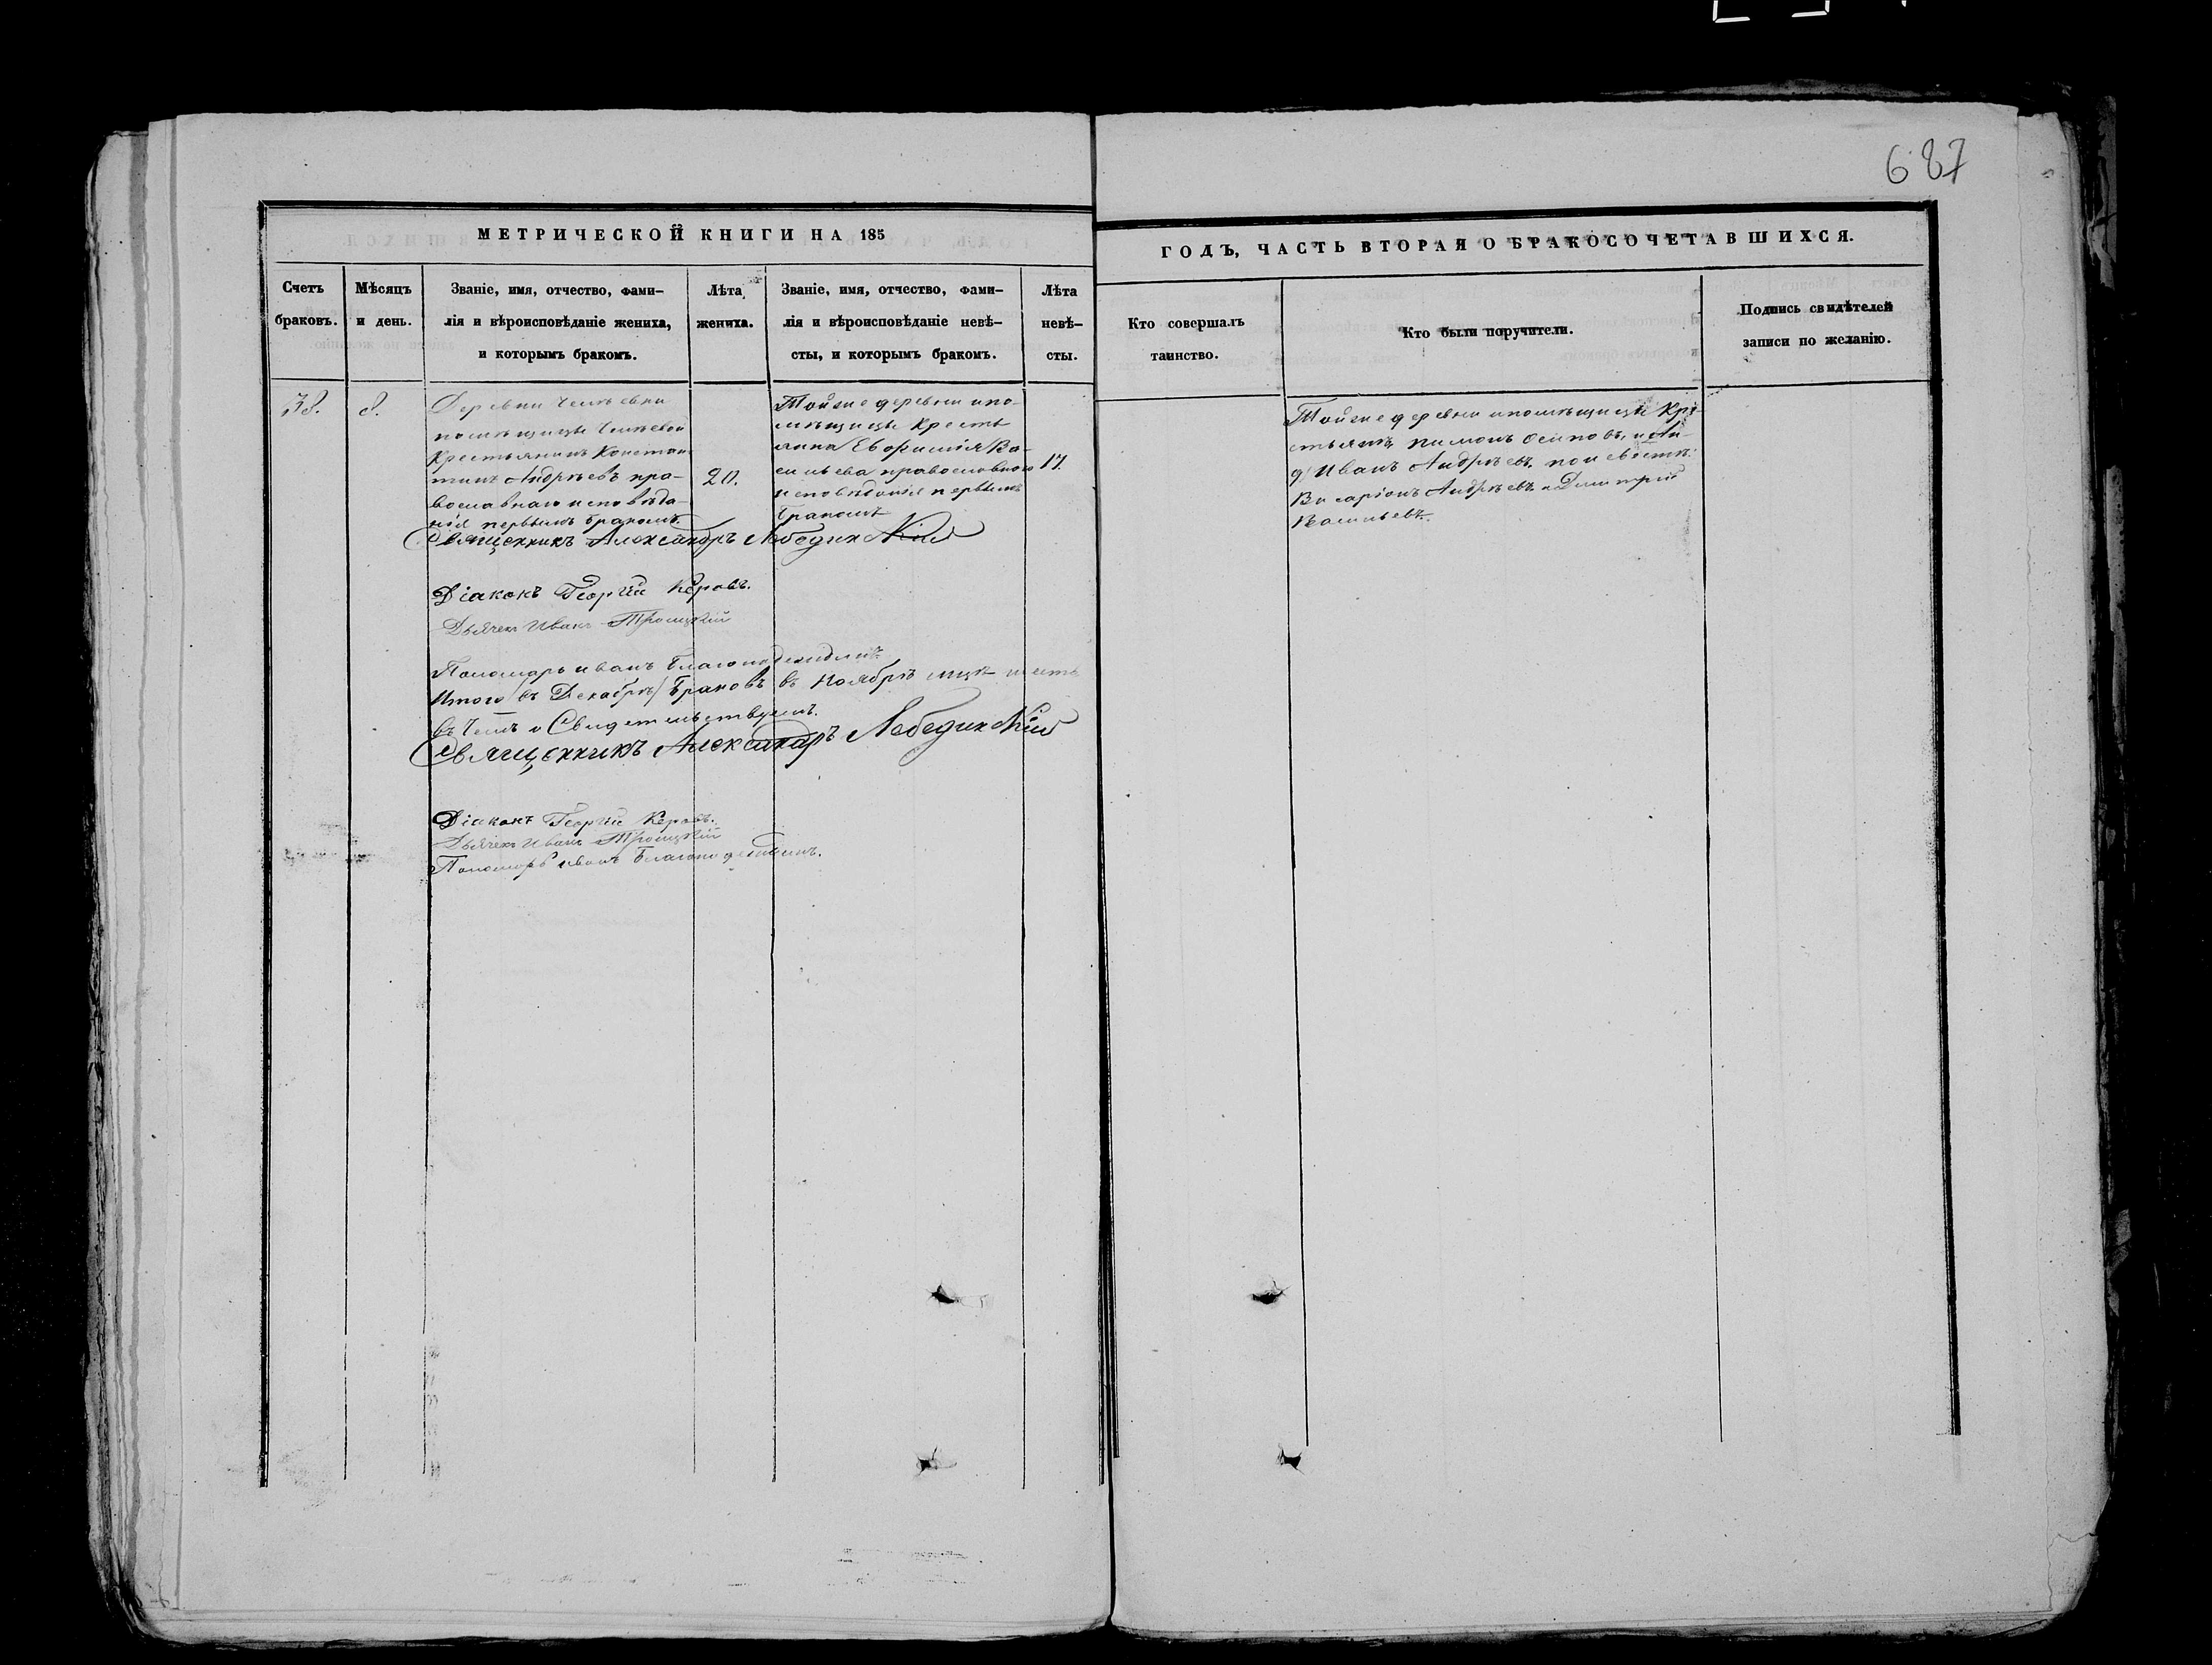 687
МЕТРИЧЕСКОЙ КНИГИ НА 185
ГОДЪ, ЧАСТЬ ВТОРАЯ О БРАКОСОЧЕТАВШИХСЯ.
Счетъ
браковъ.
Мѣсяцъ
и день.
Званіе, имя, отчество, фами-
лія и вѣроисповѣданіе жениха,
и которымъ бракомъ.
Лѣта
жениха.
Званіе, имя, отчество, фами-
лія и вѣроисповѣданіе невѣ-
сты, и которымъ бракомъ.
Лѣта
невѣ-
сты.
Кто совершалъ
таинство.
Кто были поручители.
Подпись свидѣтелей
записи по желанію.
38.
8.
Деревни
помѣщицы
Крестьянинъ Констан
тинъ Андрѣевъ пра-
вославнаго исповѣда-
нія первымъ бракомъ.
20.
Той же деревни и по-
мѣщицы Кресть
янка Евфимія Ва-
сильева православнаго
исповѣданія первымъ
бракомъ
17.
Той же деревни и помѣщицы Кре-
стьяне, Пимонъ Осиповъ, и Ан-
Иванъ Андрѣевъ. по невѣстѣ:
Висаріонъ Андрѣевъ и Димитрій
Васильевъ.
Священникъ Александръ Лебединскій
Діаконъ Георгій Керовъ.
Дьячекъ Иванъ Троицкій
Пономарь Иванъ
Итого въ Декабрѣ браковъ въ Ноябрѣ мцѣ шесть
въ чемъ и Свидетельствуемъ.
Священникъ Александръ Лебединскій
Діаконъ Георгій Керовъ.
Дьячекъ Иванъ Троицкій
Пономарь Иванъ